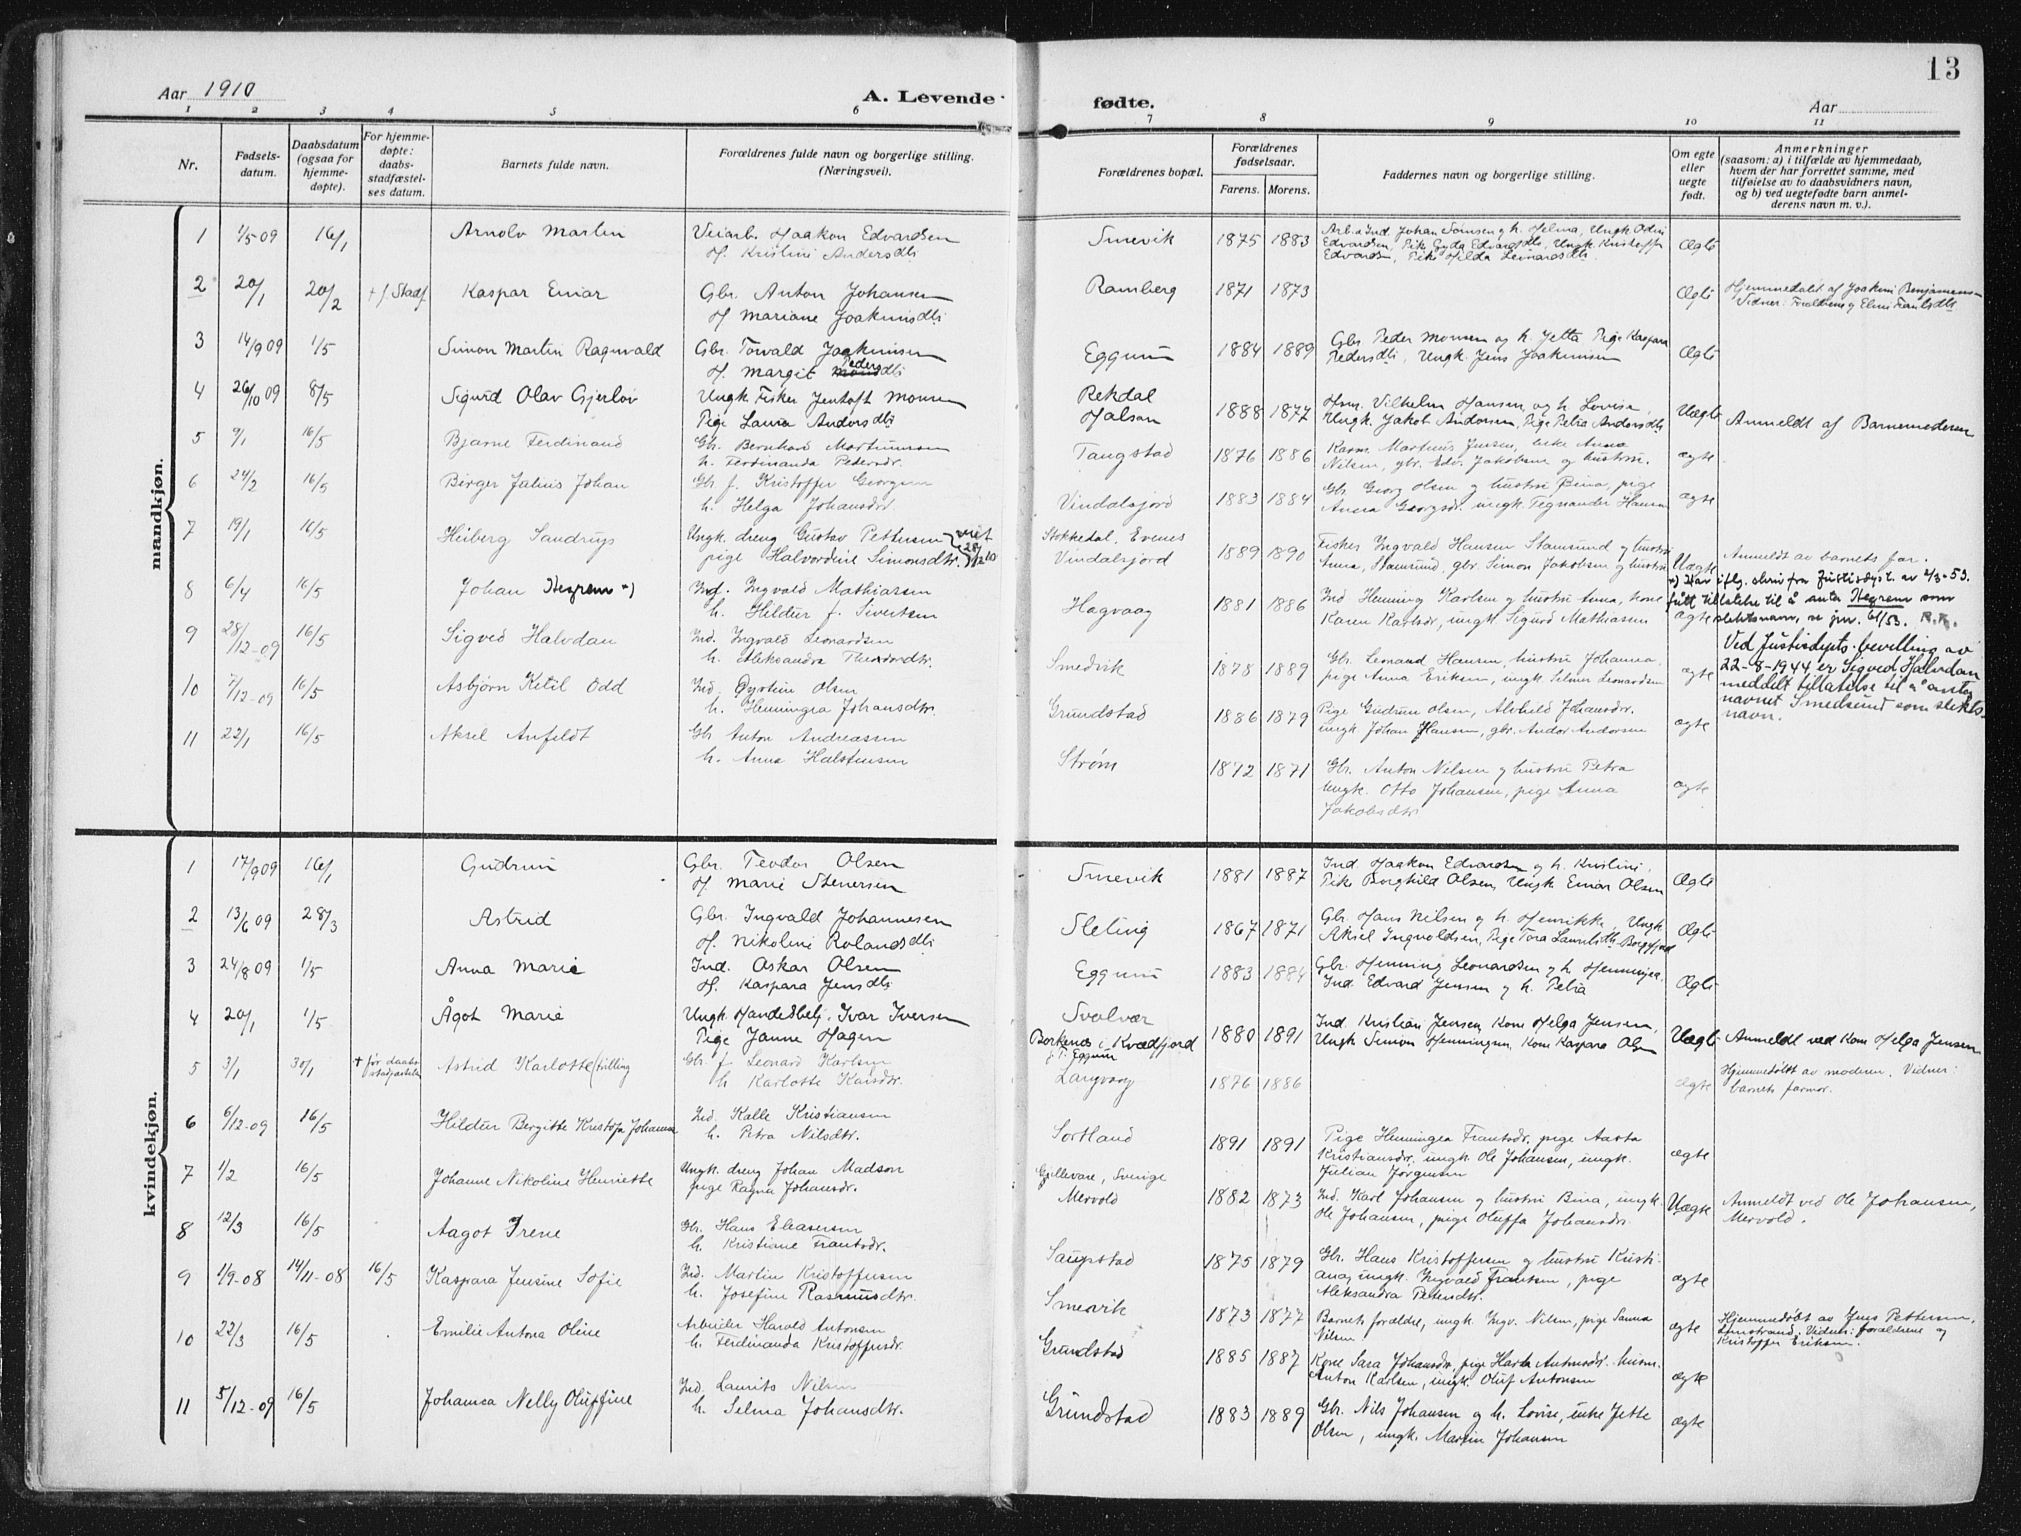 13
Aar 1910
A. Levende
fødte.
Aar
1 2 3 4 5 6 7 8 9 10 11
Nr.
Fødsels-
datum.
Daabsdatum
(ogsaa for
hjemme-
døpte).
For hjemme-
døpte:
daabs-
stadfæstel-
ses datum.
Barnets fulde navn.
Forældrenes fulde navn og borgerlige stilling.
(Næringsvei).
Forældrenes bopæl.
Forældrenes
fødselsaar.
Farens. Morens.
Faddernes navn og borgerlige stilling.
Om egte
eller
uegte
født.
Anmerkninger
(saasom: a) i tilfælde av hjemmedaab,
hvem der har forrettet samme, med
tilføielse av to daabsvidners navn,
og b) ved uegtefødte barn anmel-
derens navn m. v.).
mandkjøn.
1 1/5 09 16/1 Arnolv Martin Veiarb. Haakon Edvardsen
H. Kristini Andersdtr
Smevik 1875 1883 Arb. Ind. Johan Tomsen og h. Helma, Ungk Odin
Edvardsen, Pike Gyda Edvardsdtr, Ungk Kristoffer
Edvardsen, Pike Hilda Leonardsdtr. Ægte
2 20/1 20/2 + f. Stadf Kaspar Einar Gbr. Anton Johansen
H. Mariane Joakimsdtr
Ramberg 1871 1873 Ægte Hjemmedøbt af Joakim Benjaminsen
Vidner: Forældrene og Eline Frantsdtr
3 14/9 09 1/5 Simon Martin Ragnvald Gbr. Torvald Joakimsen
H. Margit Pedersdtr
Eggum 1884 1889 Gbr Peder Monsen og h. Jetta Pige Kaspara
Pedersdtr, Ungk. Jens Joakimsen Ægte
4 26/10 09 8/5 Sigurd Olav Gjerløv Ungk Fisker Jentoft Monsen
Pige Laura Andersdtr
Rekdal
Halsan 1888 1877 Hsm. Vilhelm Hansen og h. Lovisa,
Ungk. Jakob Andersen, Pige Petra Andersdtr Uægte Anmeldt af Barnemoderen
5 9/1 16/5 Bjarne Ferdinand Gbr. Bernhard Martinussen
h. Ferdinanda Pedersdr.
Tangstad 1876 1886 Kaarm. Martinus Jensen, enke Anna
Nilsen, gbr. Edv. Jakobsen og hustru. ægte
6 24/2 16/5 Birger Julius Johan Gbr. f. Kristoffer Georgsen
h. Helga Johansdr.
Vindalsjord 1883 1884 Gbr Georg Olsen og hustru Bina, pige
Anna Georgsdr. ungk. Tegnander Hansen ægte
7 19/1 16/5 Heiberg Sandrup Ungk. dreng Gustav Pettersen
pige Halvordine Simonsdtr. viet 28/12 10
Stokkedal, Evenes
Vindalsjord 1889 1890 Fisker Ingvald Hansen Stamsund og hustru
Anna, Stamsund, gbr. Simon Jakobsen og hustru Uægte Anmeldt av barnets far.
8 6/4 16/5 Johan Hegrem *) Ind. Ingvald Mathiassen
h. Hildur f. Sivertsen
Hagvaag 1881 1886 Ind Henning Karlsen og hustru Anna, kone
Karen Karlsdr, ungk Sigurd Mathiassen ægte
*) Har iflg. skriv fra Justisdept. av 2/3-53.
fått tillatelse til å anta Hegrem som
slektsnavn, se jnr. 61/53. R.K.
9 28/12-09 16/5 Sigved Halvdan Ind. Ingvald Leonardsen
h. Aleksandra Theodordtr.
Smedvik 1878 1889 Gbr. Leonard Hansen, hustru Johanna
pige Anna Eriksen, ungk Selmer Leonardsen ægte
Ved Justisdepts. bevilling av
22-8-1944 er Sigved Halvdan
meddelt tillatelse til å anta
navnet Smedsund som slekts-
navn.
10 7/12-09 16/5 Asbjørn Ketil Odd Ind. Øystein Olsen
h. Henningea Johansdtr.
Grundstad 1886 1879 Pige Gudrun Olsen, Alvhild Johansdr.
ungk Johan Hansen, gbr. Andor Andersen ægte
11 22/1 16/5 Aksel Anfeldt Gbr Anton Andreassen
h. Anna Halstensen
Strøm 1872 1871 Gbr. Anton Nilsen og hustru Petra
ungk. Otto Johansen, pige Anna
Jakobsdtr. ægte
kvindekjøn.
1 17/9 09 16/1 Gudrun Gbr. Teodor Olsen
H. Marie Stenersen
Smevik 1881 1887 Ind Haakon Edvardsen og h. Kristini,
Pike Borghild Olsen, Ungk Einar Olsen Ægte
2 13/6 09 28/3 Astrid Gbr. Ingvald Johannesen
H. Nikolini Rolandsdtr
Sleting 1867 1871 Gbr. Hans Nilsen og h. Henrikke, Ungk
Aksel Ingvoldsen, Pige Tora Lauritsdtr Borgfjord Ægte
3 24/8 09 1/5 Anna Marie Ind. Oskar Olsen
H. Kaspara Jensdtr
Eggum 1883 1884 Gbr. Henning Leonardsen og h. Henningea.
Ind Edvard Jensen og h. Petra Ægte
4 20/1 1/5 Ågot Marie Ungk. Handelsbetj. Ivar Iversen
Pige Janna Hagen
Svolvær
Borkenes i Kvædfjord
f. T. Eggum 1880 1891 Ind. Kristian Jensen, Kone Helga Jensen,
Ungk Simon Henningsen, Kone Kaspara Olsen Uægte Anmeldt ved Kone Helga Jensen
5 3/1 30/1 + før daabs-
stadfæstelsen Astrid Karlotte (tvilling Gbr. f. Leonard Karlsen
h Karlotte Kaisdr.
Langvaag 1876 1886 ægte Hjemmedøbt av moderen. Vidner:
barnets farmor.
6 6/12-09 16/5 Hildur Bergitte Kristofa Johanna Ind. Kalle Kristiansen
h. Petra Nilsdtr.
Sortland 1891 1891 Pige Henningea Frantsdr, pige Aasta
Kristiansdr, ungk Ole Johansen, ungk.
Julian Jørgensen ægte
7 1/2 16/5 Johanne Nikoline Henriette Ungk. dreng Johan Madson
pige Ragna Johansdr.
Gjellevare, Sverige
Mervold 1882 1873 Ind. Karl Johansen og hustru Bina, ungk.
Ole Johansen, pige Oluffa Johansdr. Uægte Anmeldt ved Ole Johansen,
Mervold.
8 12/3 16/5 Aagot Irene Gbr. Hans Eleasersen
h. Kristiane Frantsdr.
Saupstad 1875 1879 Gbr. Hans Kristoffersen og hustru Kristi-
ana, ungk. Ingvald Frantsen, pige
Aleksandra Petersdtr. ægte
9 1/9-08 14/11-08 16/5 Kaspara Jensine Sofie Ind. Martin Kristoffersen
h. Josefine Rasmusdtr.
Smevik 1873 1877 Barnets forældre, ungk. Ingv. Nilsen, pige Sanna
Nilsen ægte Hjemmedøbt av Jens Pettersen,
Stenstrand. Vidner: forældrene og
Kristoffer Eriksen.
10 22/3 16/5 Emilie Antona Oline Arbeider Harald Antonsen
h. Ferdinanda Kristoffersdr.
Grundstad 1885 1887 Kone Sara Johansdr, pige Harda Antonsdr. husm.
Anton Karlsen, ungk. Oluf Antonsen ægte
11 5/12-09 16/5 Johanna Nelly Oluffine Ind Laurits Nilsen
h. Selma Johansdtr.
Grundstad 1883 1889 Gbr. Nils Johansen og h. Lovise, enke Jette
Olsen, ungk. Martin Johansen ægte